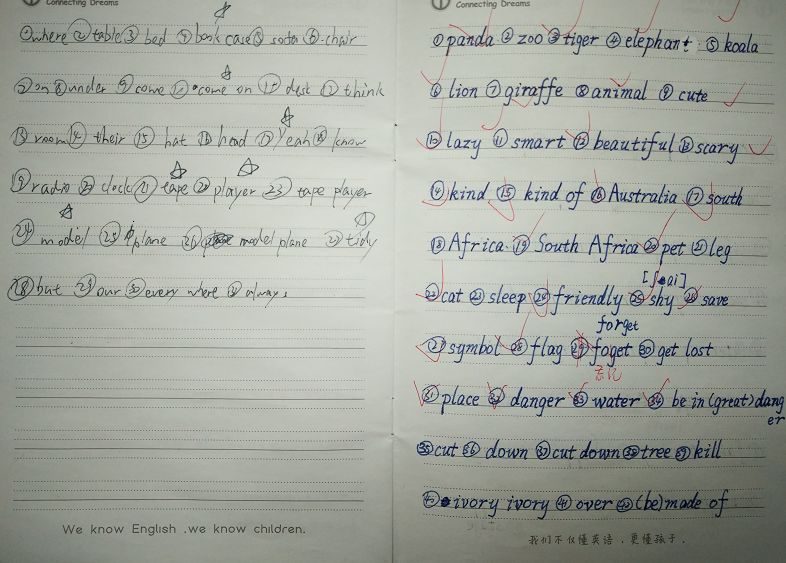 Connecting Dreams
①where ②table ③bed ④bookcase ⑤sofa ⑥chair
⑦on ⑧under ⑨come ⑩come on ⑪desk ⑫think
⑬room ⑭their ⑮hat ⑯head ⑰yeah ⑱know
⑲radio ⑳clock ㉑tape ㉒player ㉓tape player
㉔model ㉕plane ㉖model plane ㉗tidy
㉘but ㉙our ㉚every where ㉛always
We know English .we know children.
Connecting Dreams
①panda ②zoo ③tiger ④elephant ⑤koala
⑥lion ⑦giraffe ⑧animal ⑨cute
⑩lazy ⑪smart ⑫beautiful ⑬scary
⑭kind ⑮kind of ⑯Australia ⑰south
⑱Africa. ⑲South Africa ⑳pet ㉑leg
[ʃai]
㉒cat ㉓sleep ㉔friendly ㉕shy ㉖save
forget
㉗symbol ㉘flag ㉙foget ㉚get lost
忘记
㉛place ㉜danger ㉝water ㉞be in (great) dang
er
㉟cut ㊱down ㊲cut down ㊳tree ㊴kill
㊵ivory ivory ㊶over ㊷(be) made of
我们不仅懂英语，更懂孩子.